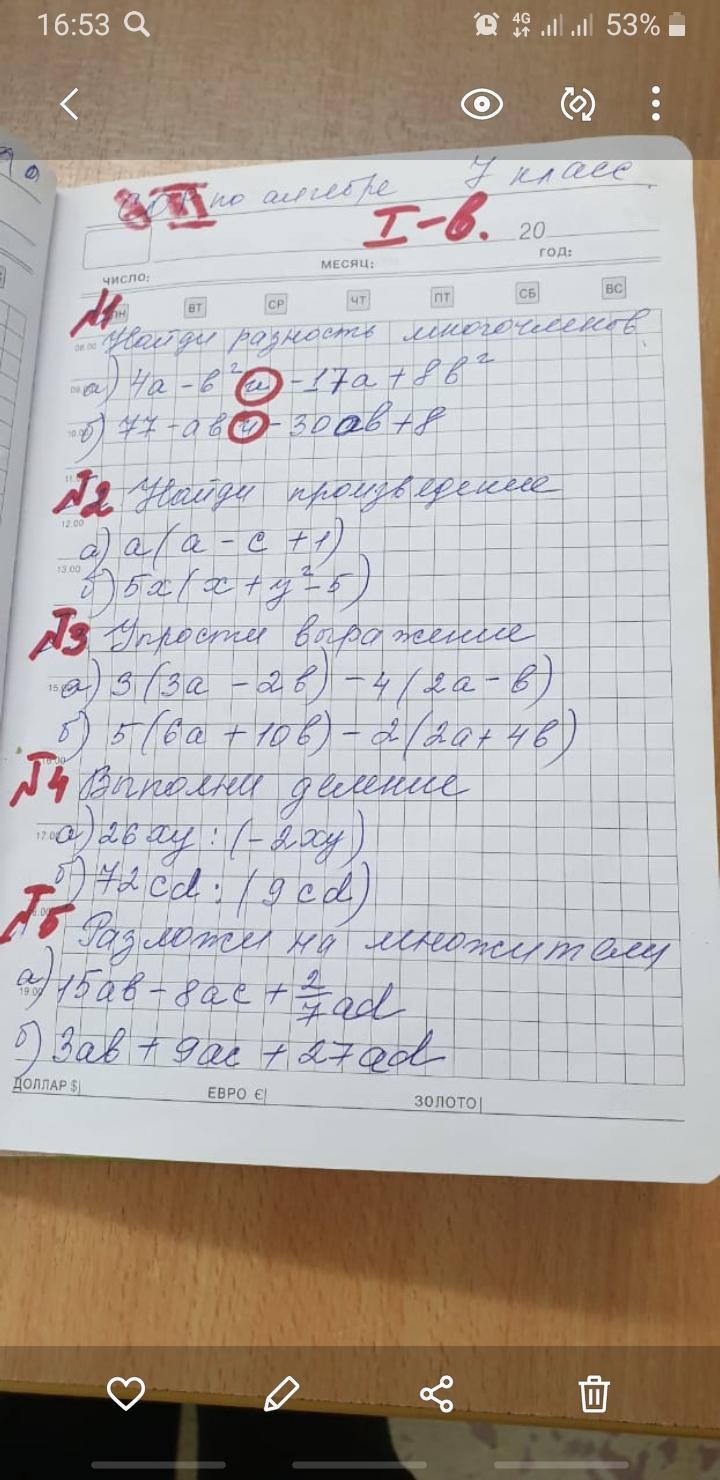 16:53 4G 53%
по алгебре 7 класс
I-в. 20
ЧИСЛО: МЕСЯЦ: ГОД:
ПН ВТ СР ЧТ ПТ СБ ВС
№1
08.00 Найди разность многочленов
09.00 а) 4а - в² и -17а + 8в²
10.00 б) 77 - ав и -30ав + 8
11.00 №2 Найди произведение
12.00 а) а(а - с + 1)
13.00 б) 5х(х + у² - 5)
№3 Упрости выражение
15.00 а) 3(3а - 2в) - 4(2а - в)
б) 5(6а + 10в) - 2(2а + 4в)
16.00
№4 Выполни деление
17.00 а) 26ху : (-2ху)
б) 72cd : (9cd)
№5 Разложи на множители
19.00 а) 15ав - 8ас + 2/7 ad
б) 3ав + 9ас + 27ad
ДОЛЛАР $| ЕВРО €| ЗОЛОТО|